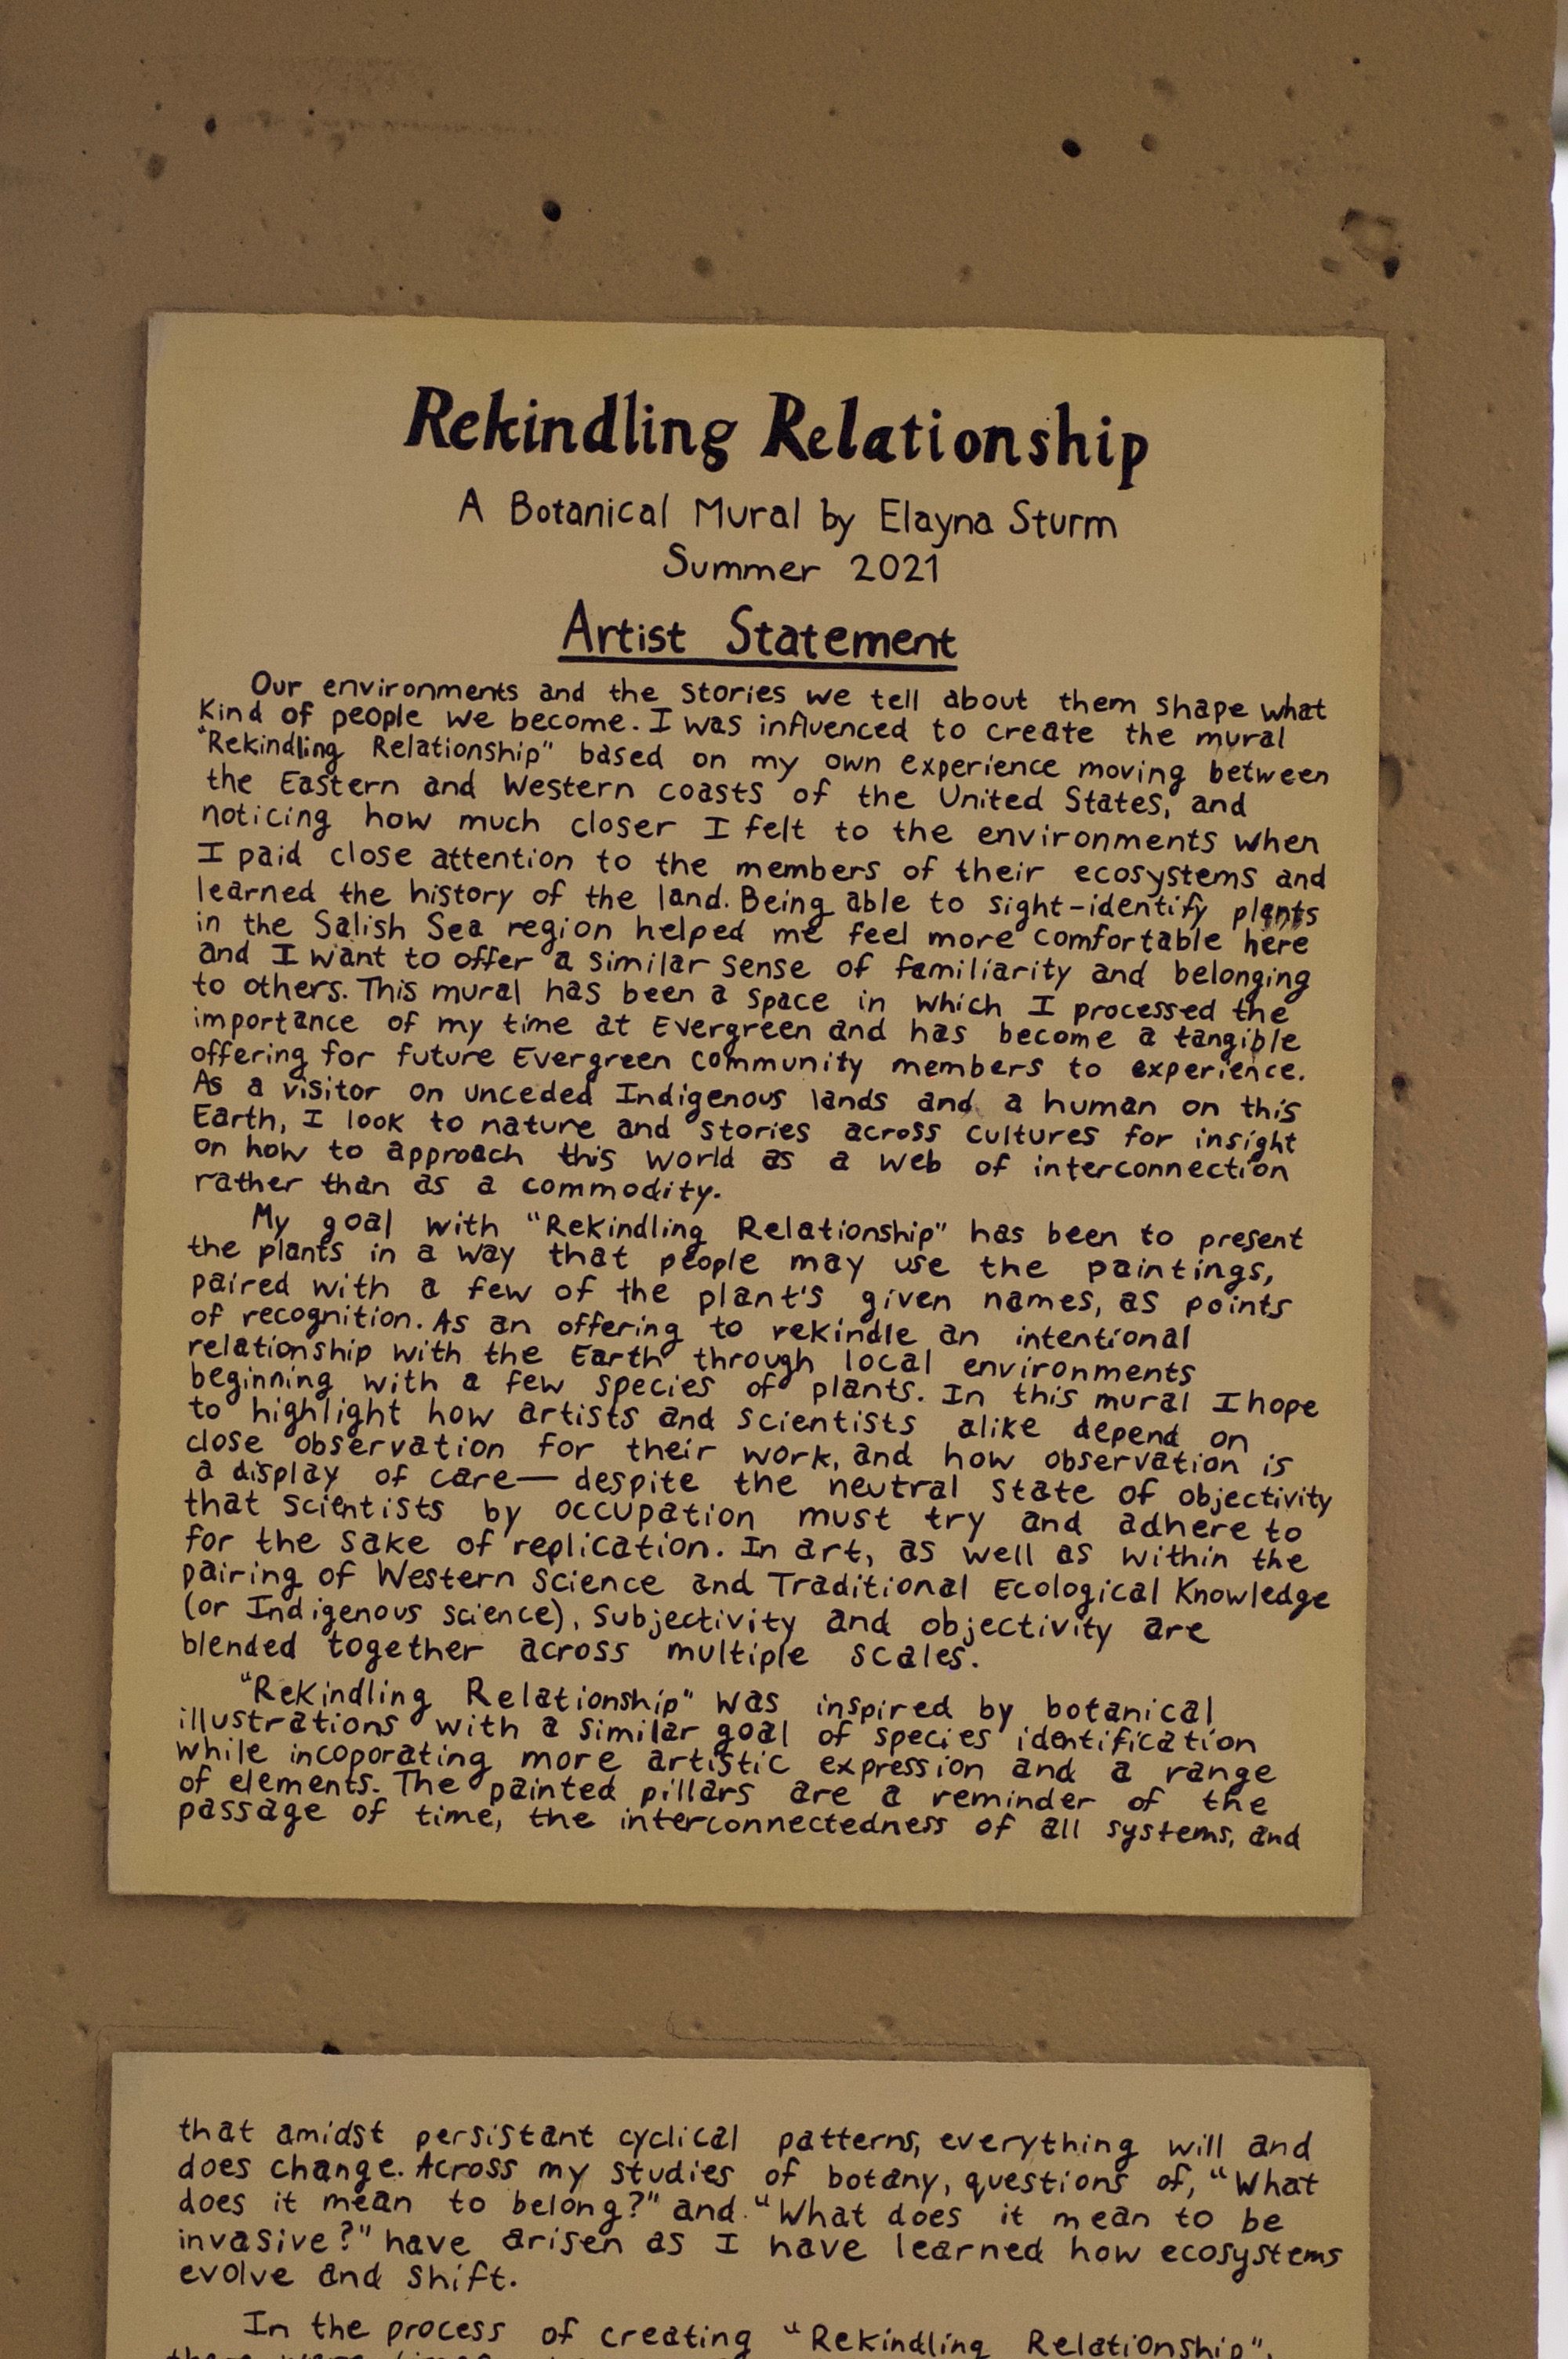 Rekindling Relationship
A Botanical Mural by Elayna Sturm
Summer 2021
Artist Statement
Our environments and the stories we tell about them shape what
kind of people we become. I was influenced to create the mural
"Rekindling Relationship" based on my own experience moving between
the Eastern and Western coasts of the United States, and
noticing how much closer I felt to the environments when
I paid close attention to the members of their ecosystems and
learned the history of the land. Being able to sight-identify plants
in the Salish Sea region helped me feel more comfortable here
and I want to offer a similar sense of familiarity and belonging
to others. This mural has been a space in which I processed the
importance of my time at Evergreen and has become a tangible
offering for future Evergreen community members to experience.
As a visitor on unceded Indigenous lands and a human on this
Earth, I look to nature and stories across cultures for insight
on how to approach this world as a web of interconnection
rather than as a commodity.
My goal with "Rekindling Relationship" has been to present
the plants in a way that people may use the paintings,
paired with a few of the plant's given names, as points
of recognition. As an offering to rekindle an intentional
relationship with the Earth through local environments
beginning with a few species of plants. In this mural I hope
to highlight how artists and scientists alike depend on
close observation for their work, and how observation is
a display of care— despite the neutral state of objectivity
that scientists by occupation must try and adhere to
for the sake of replication. In art, as well as within the
pairing of Western Science and Traditional Ecological Knowledge
(or Indigenous science), subjectivity and objectivity are
blended together across multiple scales.
"Rekindling Relationship" was inspired by botanical
illustrations with a similar goal of species identification
while incoporating more artistic expression and a range
of elements. The painted pillars are a reminder of the
passage of time, the interconnectedness of all systems, and
that amidst persistant cyclical patterns, everything will and
does change. Across my studies of botany, questions of, "What
does it mean to belong?" and "What does it mean to be
invasive?" have arisen as I have learned how ecosystems
evolve and shift.
In the process of creating "Rekindling Relationship",